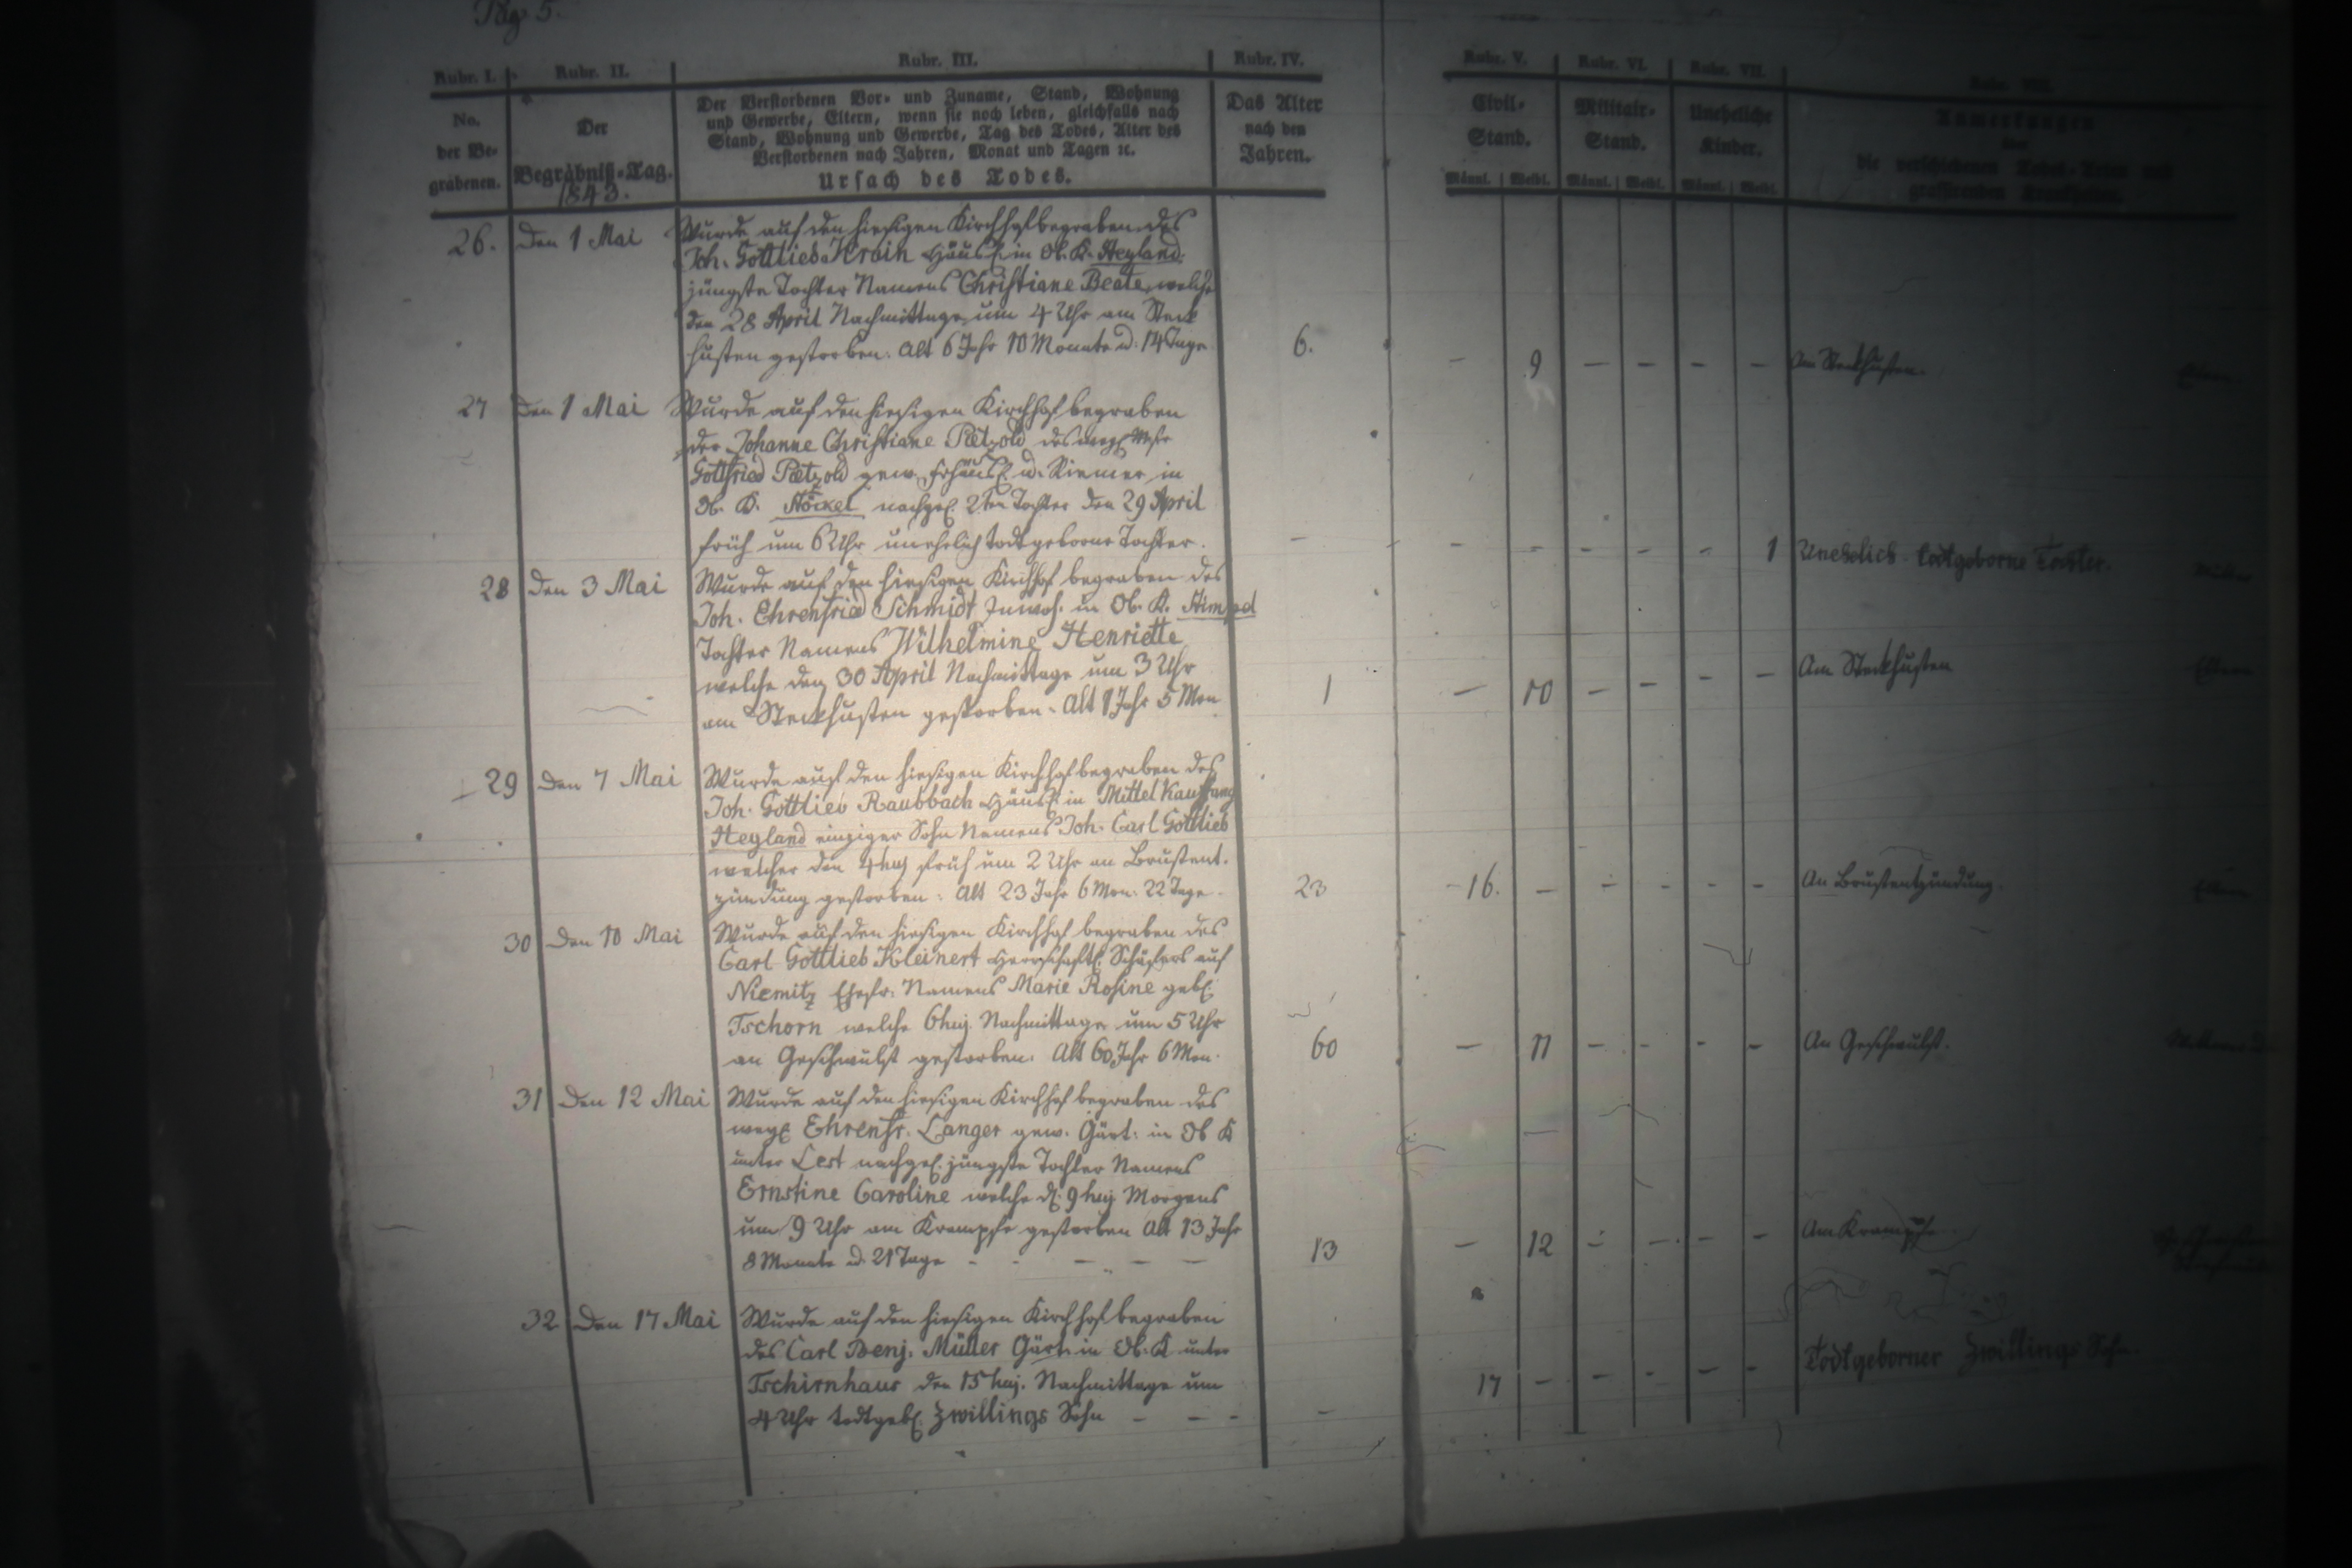 Pag 5.
Rubr. I. Rubr. II. Rubr. III. Rubr. IV. Rubr. V. Rubr. VI. Rubr. VII. Rubr. VIII.
No. der Be-grabenen.
Der Begräbniß-Tag.
1843.
Der Verstorbenen Vor- und Zuname, Stand, Wohnung
und Gewerbe, Eltern, wenn sie noch leben, gleichfalls nach
Stand, Wohnung und Gewerbe, Tag des Todes, Alter des
Verstorbenen nach Jahren, Monat und Tagen ꝛc.
Ursach des Todes.
Das Alter
nach den
Jahren.
Civil-
Stand.
Militair-
Stand.
Uneheliche
Kinder.
Männl. Weibl. Männl. Weibl. Männl. Weibl.
Anmerkungen
über
die verschiedenen Todes-Arten und
grassirenden Krankheiten.
26. Den 1 Mai Wurde auf den hiesigen Kirchhof begraben des
Joh. Gottlieb Krain Häusl. in Ob. K. Heyland
jüngste Tochter Namens Christiane Beate, welche
den 28 April Nachmittage um 4 Uhr am Steck
husten gestorben. Alt 6 Jahr 10 Monate u. 14 Tage 6. – 9 – – – – Am Steckhusten.
27 Den 1 Mai Wurde auf den hiesigen Kirchhof begraben
der Johanne Christiane Pätzold des
Gottfried Pätzold gew. Frhäusl. u. Riemer in
Ob. K. Stöckel nachgel. 2ten Tochter den 29 April
früh um 6 Uhr unehelich todtgeborne Tochter. – – – – – – 1 Unehelich todtgeborne Tochter.
28 Den 3 Mai Wurde auf den hiesigen Kirchhof begraben des
Joh. Ehrenfried Schmidt Inwoh. in Ob. K.
Tochter Namens Wilhelmine Henriette
welche den 30 April Nachmittage um 3 Uhr
am Steckhusten gestorben. Alt 1 Jahr 5 Mon 1 – 10 – – – – Am Steckhusten
29 Den 7 Mai Wurde auf den hiesigen Kirchhof begraben des
Joh. Gottlieb Raubbach Häusl. in Mittel Kauffung
Heyland einziger Sohn Namens Joh. Carl Gottlieb
welcher den 4 huj früh um 2 Uhr an Brustent.
zündung gestorben. Alt 23 Jahr 6 Mon. 22 Tage 23 16. – – – – – An Brustentzündung.
30 Den 10 Mai Wurde auf den hiesigen Kirchhof begraben des
Carl Gottlieb Kleinert Herrschaftl. Schäfers auf
Niemitz Ehefr. Namens Marie Rosine gebl.
Tschorn welche 6 huj. Nachmittage um 5 Uhr
an Geschwulst gestorben. Alt 60 Jahr 6 Mon. 60 – 11 – – – – An Geschwulst.
31 Den 12 Mai Wurde auf den hiesigen Kirchhof begraben des
weyl. Ehrenfr. Langer gew. Gärt. in Ob K
unter Lest nachgel. jüngste Tochter Namens
Ernstine Caroline welche d. 9 huj Morgens
um 9 Uhr am Krampfe gestorben Alt 13 Jahr
8 Monate u. 21 Tage 13 – 12 – – – – Am Krampfe.
32 Den 17 Mai Wurde auf den hiesigen Kirchhof begraben
des Carl Benj. Müller Gärt. in Ob. K unter
Tschirnhaus den 15 huj. Nachmittage um
4 Uhr todtgebl. Zwillings Sohn – 17 – – – – – Todtgeborner Zwillings Sohn.